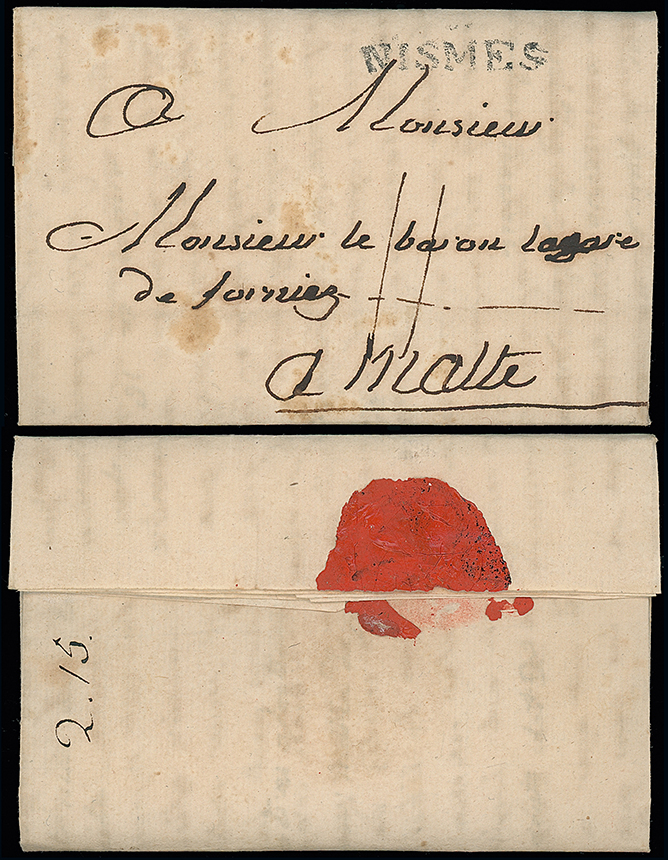 NISMES
A Monsieur
Monsieur le baron lagare
de forniez
a Malte
2.15.